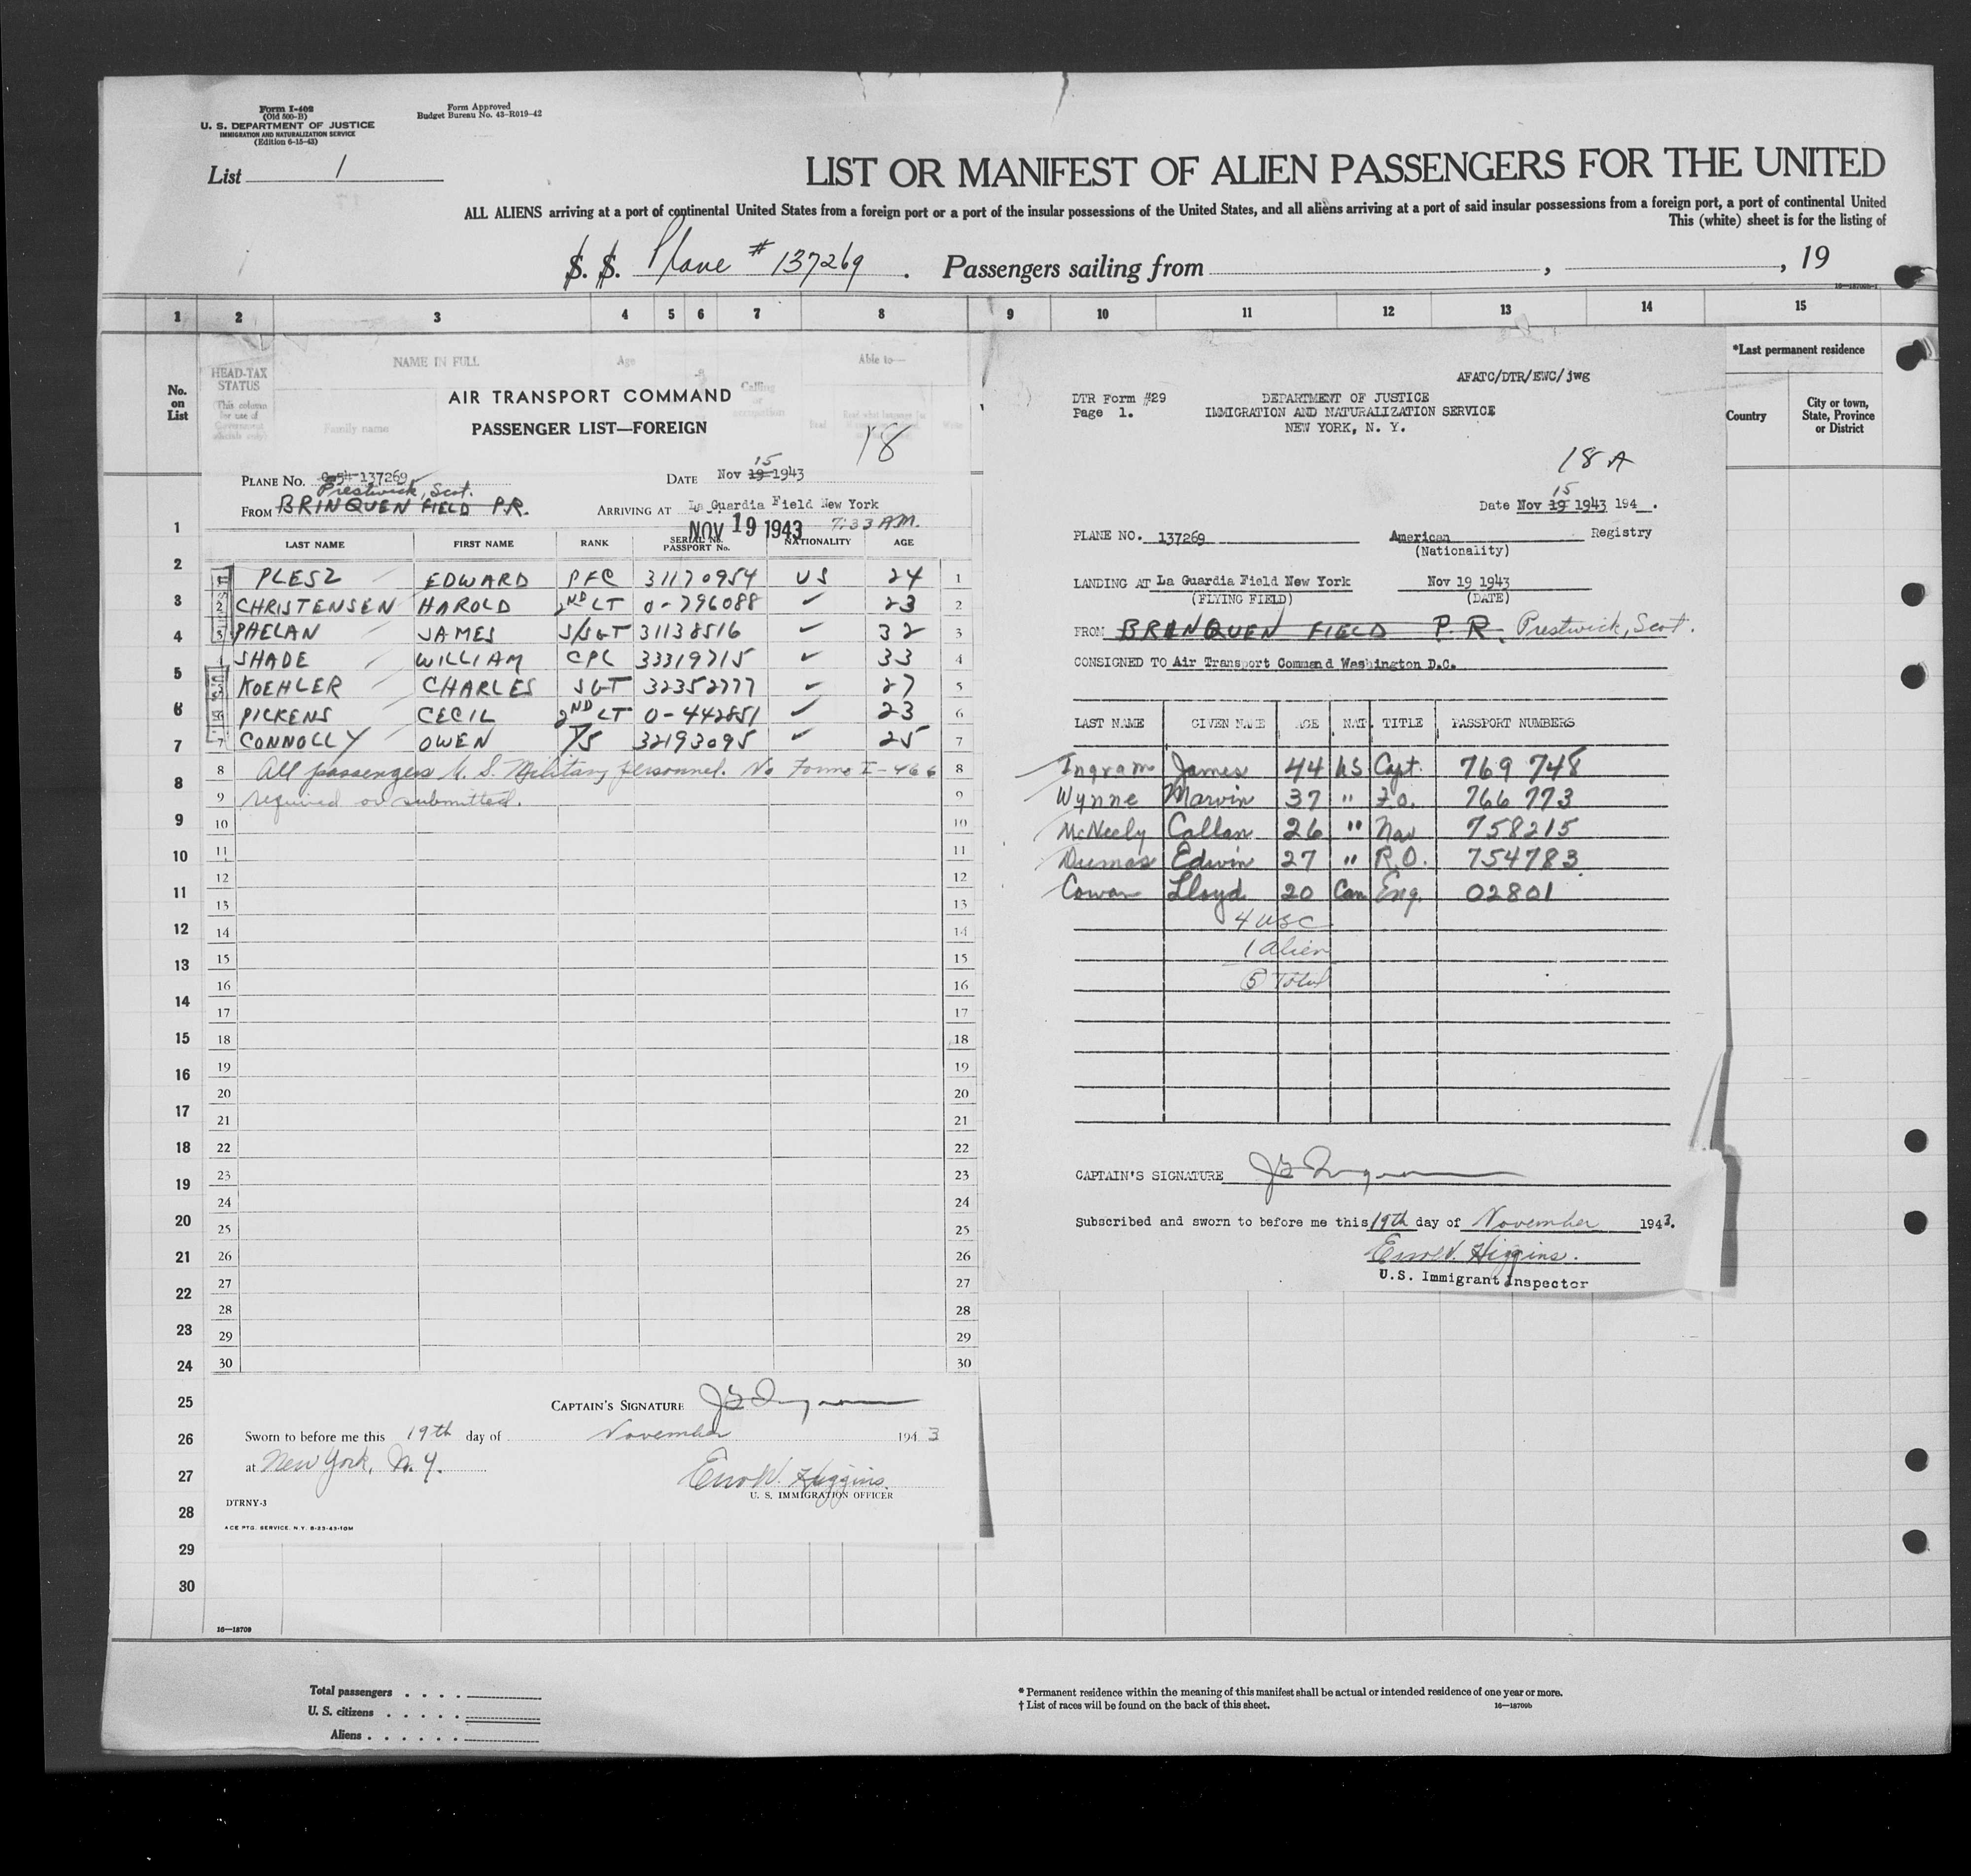 Form I-402
(Old 500-B)
U. S. DEPARTMENT OF JUSTICE
IMMIGRATION AND NATURALIZATION SERVICE
(Edition 6-15-43)
Form Approved
Budget Bureau No. 43-R019-42
List 1
LIST OR MANIFEST OF ALIEN PASSENGERS FOR THE UNITED
ALL ALIENS arriving at a port of continental United States from a foreign port or a port of the insular possessions of the United States, and all aliens arriving at a port of said insular possessions from a foreign port, a port of continental United
This (white) sheet is for the listing of
S. S. Plane # 137269 . Passengers sailing from , , 19
1 2 3 4 5 6 7 8 9 10 11 12 13 14 15
No. on List
HEAD-TAX STATUS
(This column for use of Government officials only)
NAME IN FULL
Family name
Age
Calling or occupation
Able to—
Read
*Last permanent residence
Country
City or town, State, Province or District
AIR TRANSPORT COMMAND
PASSENGER LIST—FOREIGN
18
PLANE NO. C-54-137269
DATE Nov 19 15 1943
Prestwick, Scot.
FROM BRINQUEN FIELD P.R.
ARRIVING AT La Guardia Field New York
NOV 19 1943 7:33 AM.
LAST NAME FIRST NAME RANK SERIAL No. PASSPORT No. NATIONALITY AGE
PLESZ EDWARD PFC 31170954 US 24 1
2 CHRISTENSEN HAROLD 2ND LT 0-796088 ✓ 23 2
3 PHELAN JAMES S/SGT 31138516 ✓ 32 3
SHADE WILLIAM CPL 33319715 ✓ 33 4
KOEHLER CHARLES SGT 32352777 ✓ 27 5
6 PICKENS CECIL 2ND LT 0-442851 ✓ 23 6
7 CONNOLLY OWEN T/5 32193095 ✓ 25 7
8 All passengers U. S. Military personnel. No Forms I-466 8
9 required or submitted. 9
10 10
11 11
12 12
13 13
14 14
15 15
16 16
17 17
18 18
19 19
20 20
21 21
22 22
23 23
24 24
25 25
26 26
27 27
28 28
29 29
30 30
CAPTAIN'S SIGNATURE
Sworn to before me this 19th day of November 1943
at New York, N. Y.
Errol V. Higgins.
U. S. IMMIGRATION OFFICER
DTRNY-3
ACE PTG. SERVICE. N.Y. 8-23-43-10M
AFATC/DTR/EWC/jwg
DTR Form #29
Page 1.
DEPARTMENT OF JUSTICE
IMMIGRATION AND NATURALIZATION SERVICE
NEW YORK, N. Y.
18 A
Date Nov 19 15 1943 194 .
PLANE NO. 137269 American Registry
(Nationality)
LANDING AT La Guardia Field New York Nov 19 1943
(FLYING FIELD) (DATE)
FROM BRINQUEN FIELD P. R. Prestwick, Scot.
CONSIGNED TO Air Transport Command Washington D.C.
LAST NAME GIVEN NAME AGE NAT TITLE PASSPORT NUMBERS
Ingram James 44 US Capt. 769 748
Wynne Marvin 37 " F.O. 766 773
McNeely Callan 26 " Nav 758215
Dumas Edwin 27 " R.O. 754783
Cowan Lloyd 20 Can Eng. 02801
4 USC
1 alien
5 Total
CAPTAIN'S SIGNATURE
Subscribed and sworn to before me this 19th day of November 1943.
Errol V. Higgins.
U.S. Immigrant Inspector
1
2
3
4
5
6
7
8
9
10
11
12
13
14
15
16
17
18
19
20
21
22
23
24
25
26
27
28
29
30
16—18709
Total passengers
U. S. citizens
Aliens
* Permanent residence within the meaning of this manifest shall be actual or intended residence of one year or more.
† List of races will be found on the back of this sheet.
16—18709b